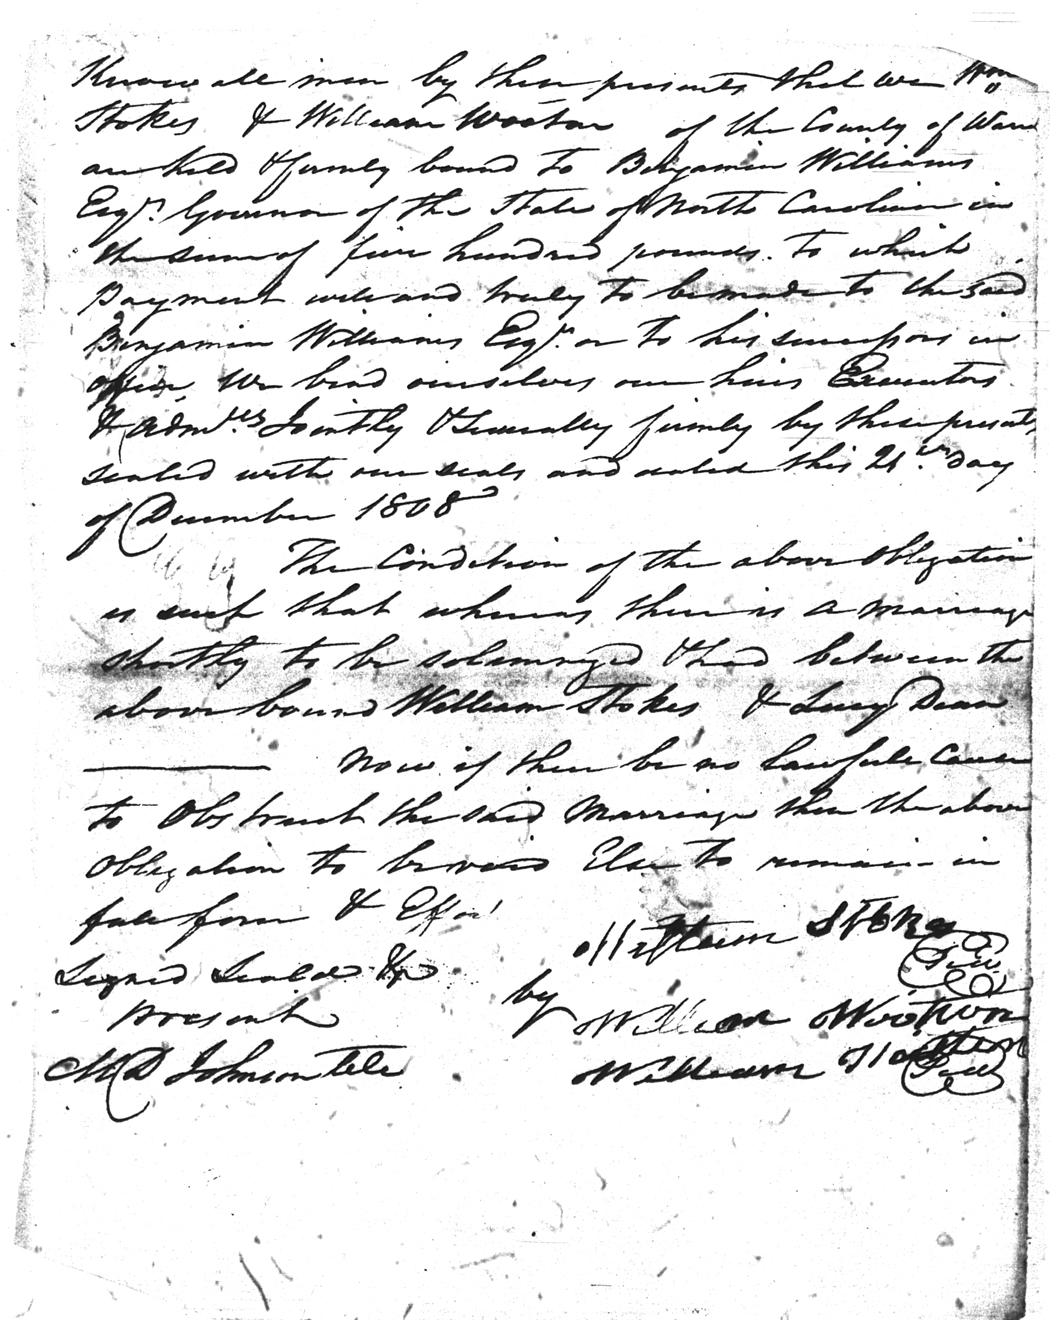 Know all men by these presents that we Wm
Stokes & William Wooton of the County of Warren
are held & firmly bound to Benjamin Williams
Esqr. Governor of the State of North Carolina in
the sum of five hundred pounds. to which
payment well and truly to be made to the said
Benjamin Williams Esqr. or to his successors in
office, We bind ourselves our heirs Executors
& Adm.ers Jointly & Severally firmly by these presents
sealed with our seals and dated this 21st Day
of December 1808
The Condition of the above Obligation
is such that whereas there is a marriage
shortly to be solemnized & had between the
above bound William Stokes & Lucy Dean
Now if there be no lawfull Cause
to Obstruct the said Marriage then the above
Obligation to be void Else to remain in
full force & Effect
Signed Seald &
William Stokes
Seal
present
by William Wootton
M D Johnson
William Wootton
Seal